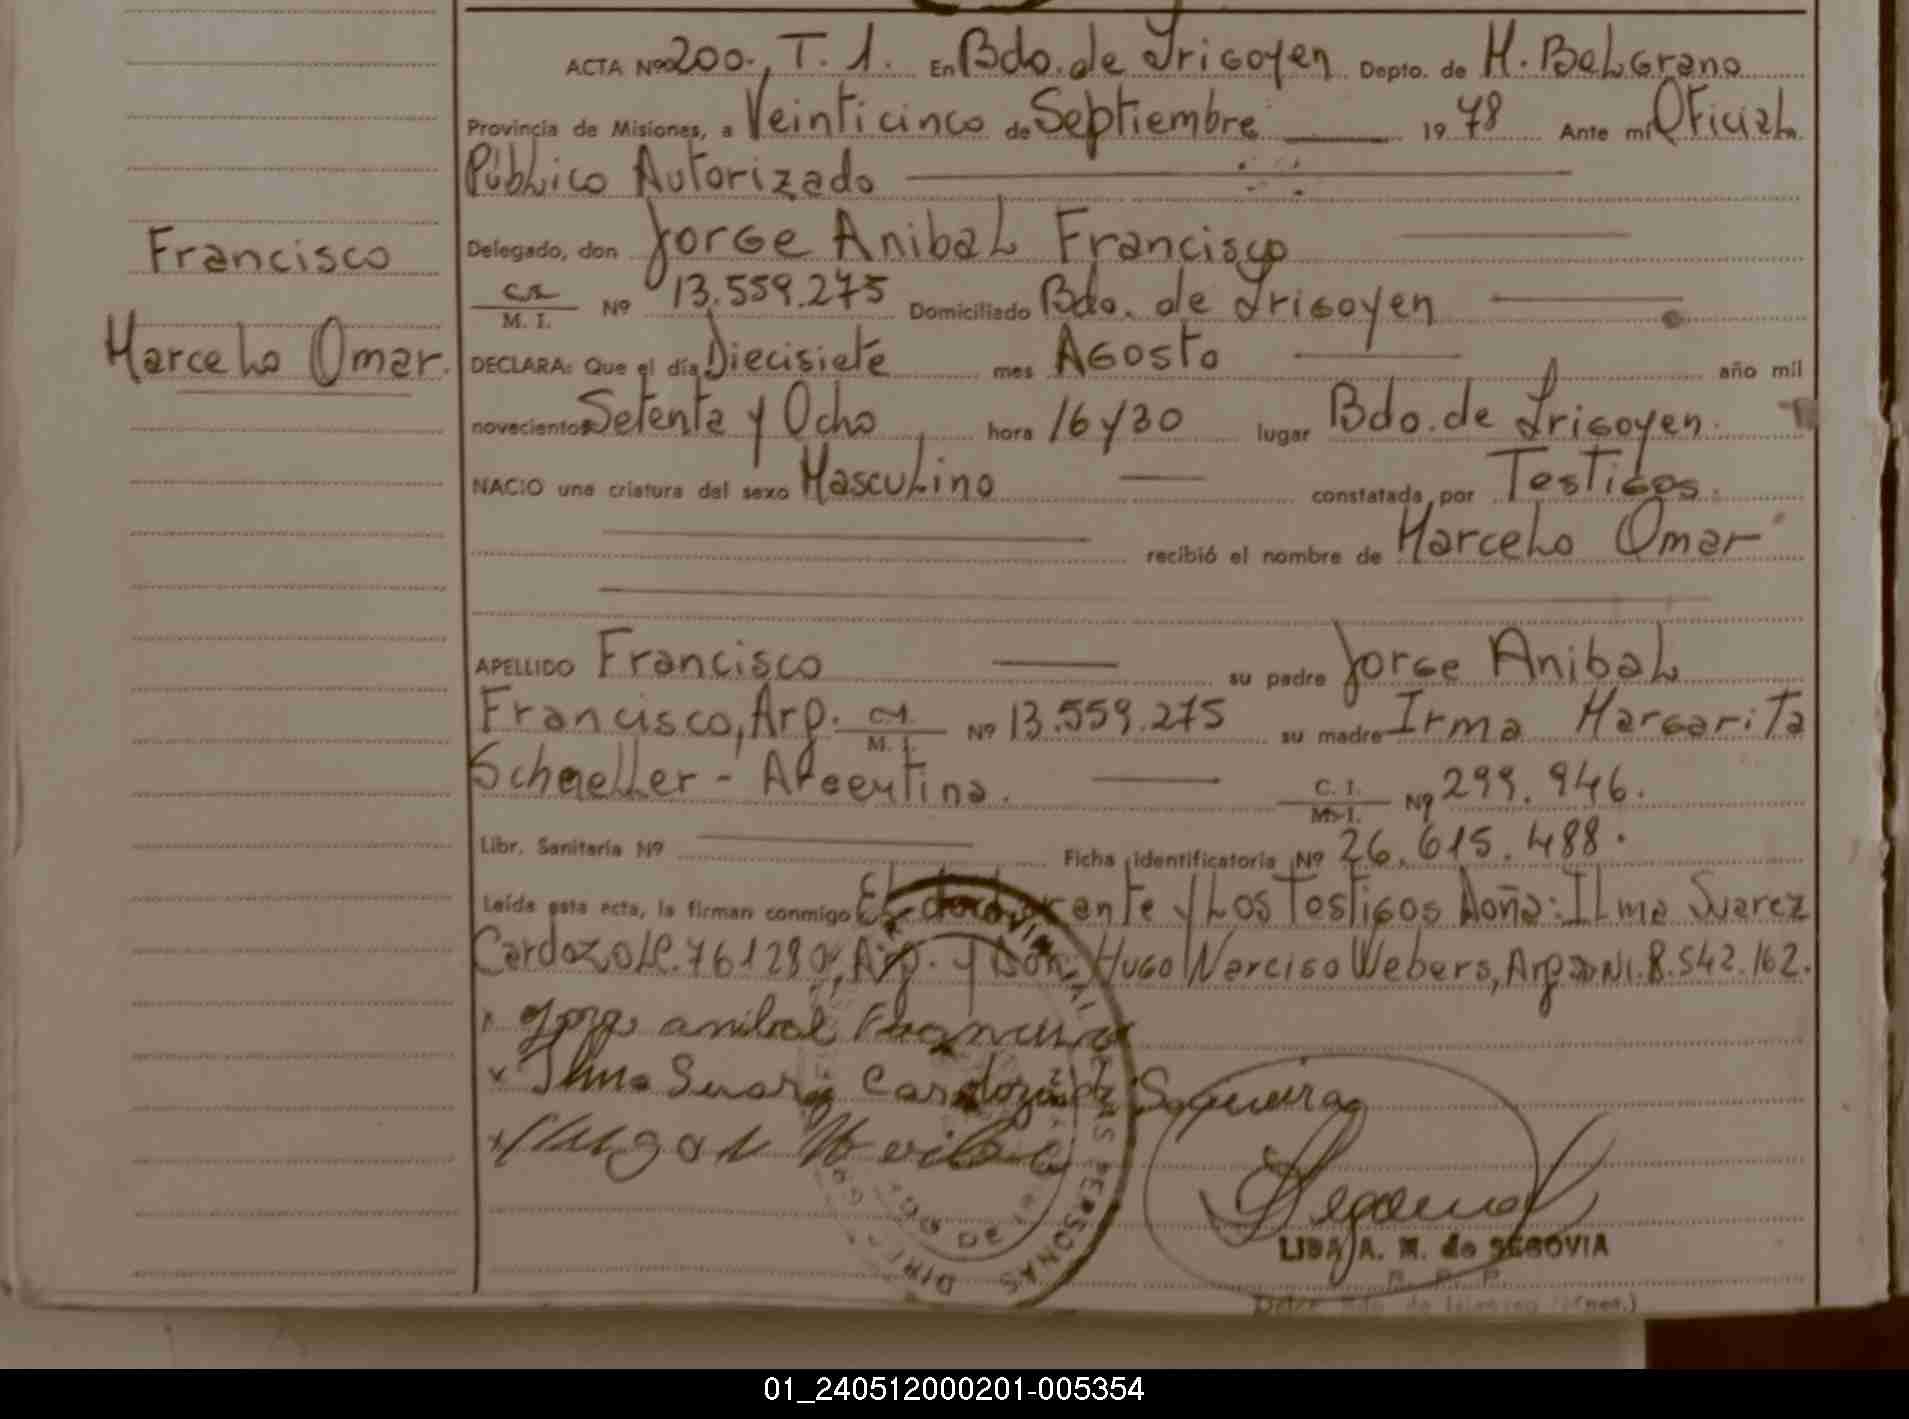 ACTA Nº 200., T. 1. En Bdo. de Irigoyen Depto. de M. Belgrano
Provincia de Misiones, a Veinticinco de Septiembre 19 78 Ante mí Oficial
Público Autorizado
Delegado, don Jorge Anibal Francisco
Francisco
M. I. Nº 13.559.275 Domiciliado Bdo. de Irigoyen
Marcelo Omar.
DECLARA: Que el día Diecisiete mes Agosto año mil
novecientos Setenta y Ocho hora 16 y 30 lugar Bdo. de Irigoyen.
NACIO una criatura del sexo Masculino constatada por Testigos.
recibió el nombre de Marcelo Omar
APELLIDO Francisco su padre Jorge Anibal
Francisco, Arg. C.I. M. I. Nº 13.559.275 su madre Irma Margarita
Schaeller - Argentina. C. I. M. I. Nº 299.946.
Libr. Sanitaria Nº Ficha Identificatoria Nº 26.615.488.
Leída esta acta, la firman conmigo El declarante y Los Testigos Doña: Ilma Suarez
Cardozo LC. 761280, Arg. y Don: Hugo Narciso Webers, Arg. DNI. 8.542.162.
Jorge anibal Francisco
Ilma Suarez Cardozo de Sequeira
Hugo N
LIDA A. M. de SEGOVIA
01_240512000201-005354